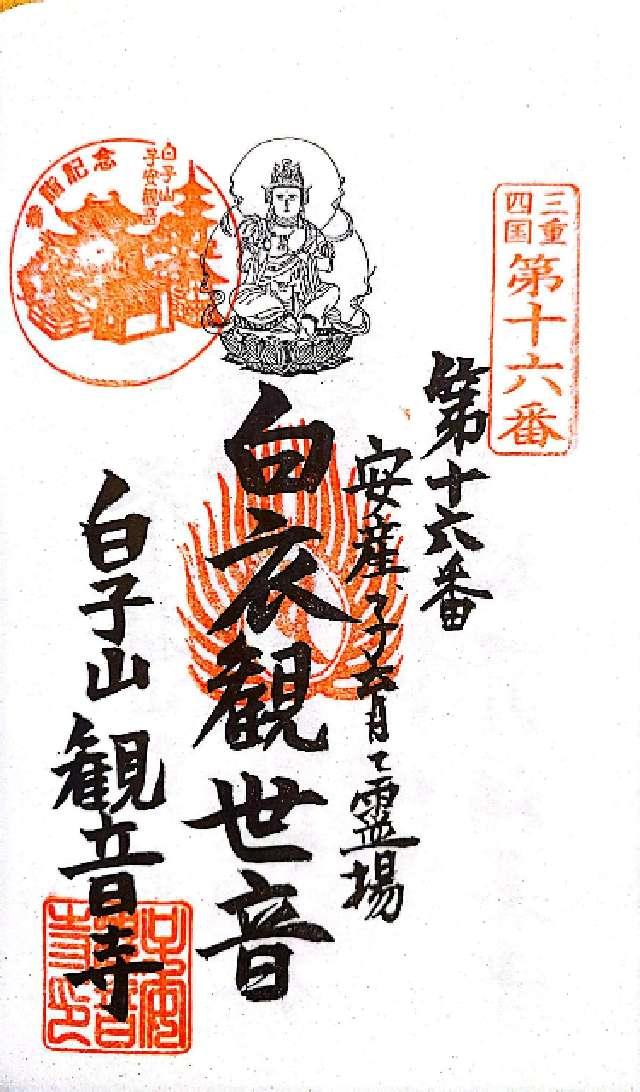 三重
四国
第十六番
第十六番
安産、子育て霊場
白衣観世音
白子山観音寺
参詣記念
白子山
子安観音